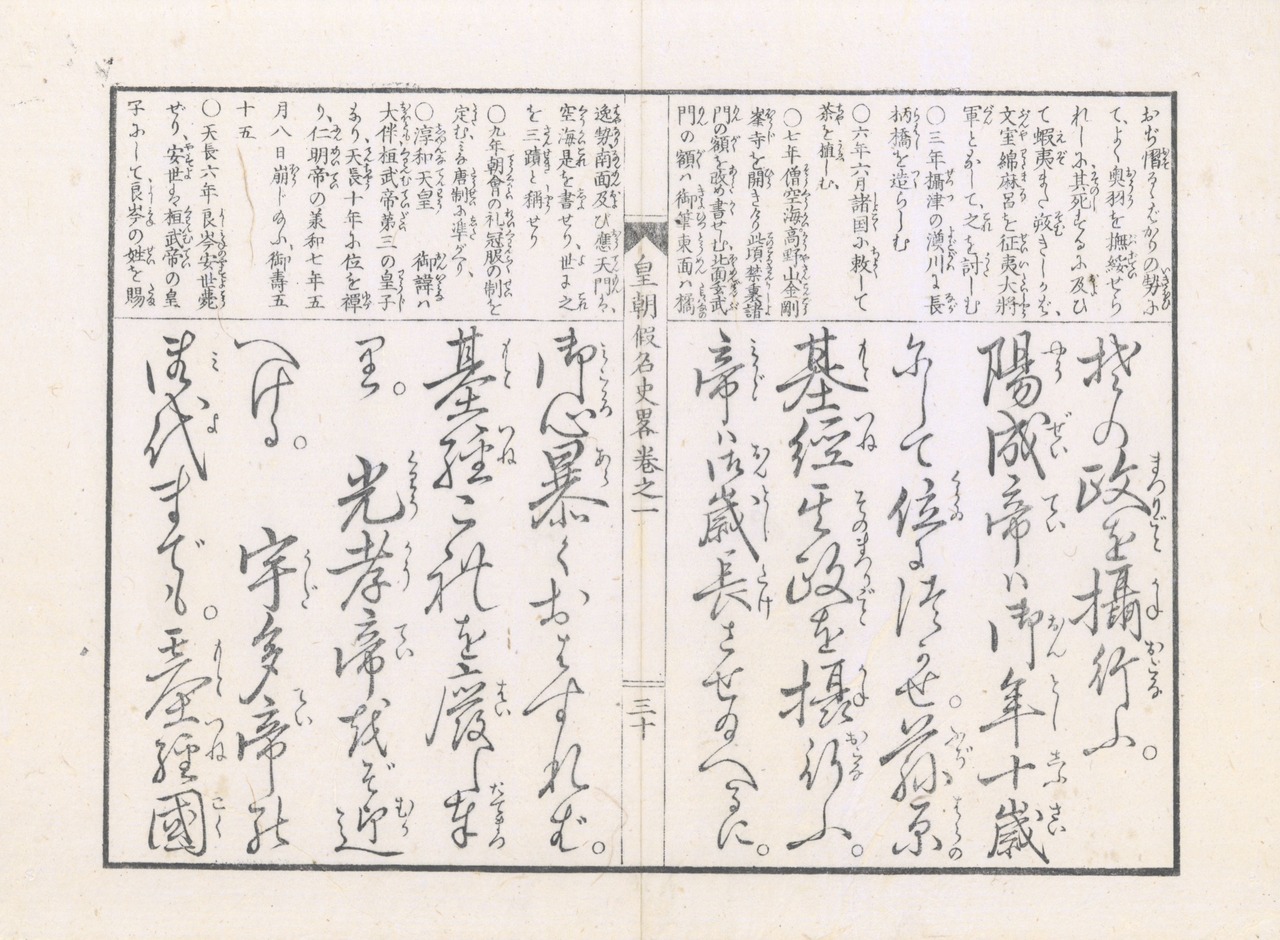 おぢ慴るゝばかりの勢に
て、よく奥羽を撫綏せら
れしに其死するに及ひ
て蝦夷また叛きしかば、
文室綿麻呂を征夷大將
軍となして、之を討しむ
〇三年攝津の漢川に長
柄橋を造らしむ
〇六年六月諸国に敕して
茶を植しむ
〇七年僧空海高野山金剛
峯寺を開きたり此頃禁裏諸
門の額を改め書せしむ北面玄武
門の額ハ御筆東面ハ橘
逸勢南面及び應天門ハ、
空海是を書せり、世に之
を三蹟と稱せり
〇九年朝會の礼冠服の制を
定む、みな唐制に準ぜり、
〇淳和天皇　御諱ハ
大伴桓武帝第三の皇子
なり、天長十年に位を禪
り、仁明帝の兼和七年五
月八日崩じ給ふ、御壽五
十五
〇天長六年良岑安世薨
せり、安世ハ桓武帝の皇
子にして良岑の姓を賜
その政を攝行ふ。
陽成帝ハ御年十歳
にして位につかせ。藤原
基經其政を攝行ふ。
帝ハ御歳長させ給へるに。
皇朝假名史畧卷之一
三十
御心暴くおはすれば。
基經これを廢し奉
り。光孝帝をぞ迎
へける。宇多帝の
御代までも。基經國